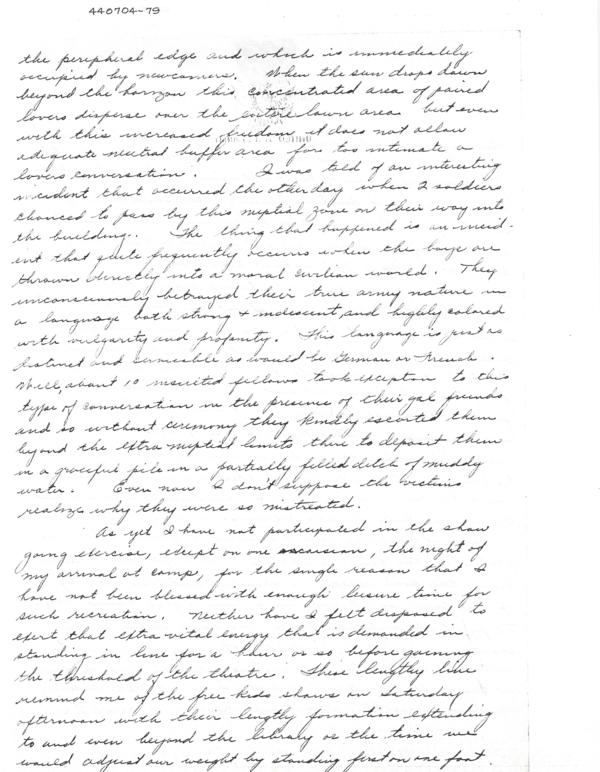 440704-79
the peripheral edge and which is immediately
occupied by newcomers. When the sun drops down
beyond the horizon this concentrated area of paired
lovers disperse over the entire lawn area but even
with this increased freedom it does not allow
adequate neutral buffer area for too intimate a
lovers conversation. I was told of an interesting
incident that occurred the other day when 2 soldiers
chanced to pass by this nuptial zone on their way into
the building. The thing that happened is an incid-
ent that quite frequently occurs when the boys are
thrown directly into a moral civilian world. They
unconsciously betrayed their true army nature in
a language both strong + indescent, and highly colored
with vulgarity and profanity. This language is just as
distinct and as would be German or French.
Well, about 10 insulted fellows took exception to this
type of conversation in the presence of their gal friends
and so without ceremony they kindly escorted them
beyond the extra nuptial limits there to deposit them
in a graceful pile in a partially filled ditch of muddy
water. Even now I don't suppose the victims
realize why they were so mistreated.
As yet I have not participated in the show
going exercise, except on one occasion, the night of
my arrival at camp, for the single reason that I
have not been blessed with enough leisure time for
such recreation. Neither have I felt disposed to
exert that extra vital energy that is demanded in
standing in line for a hour or so before gaining
the threshold of the theatre. These lengthy line
remind me of the free kids shows on Saturday
afternoon with their lengthy formation extending
to and even beyond the library as the time we
would adjust our weight by standing first on one foot